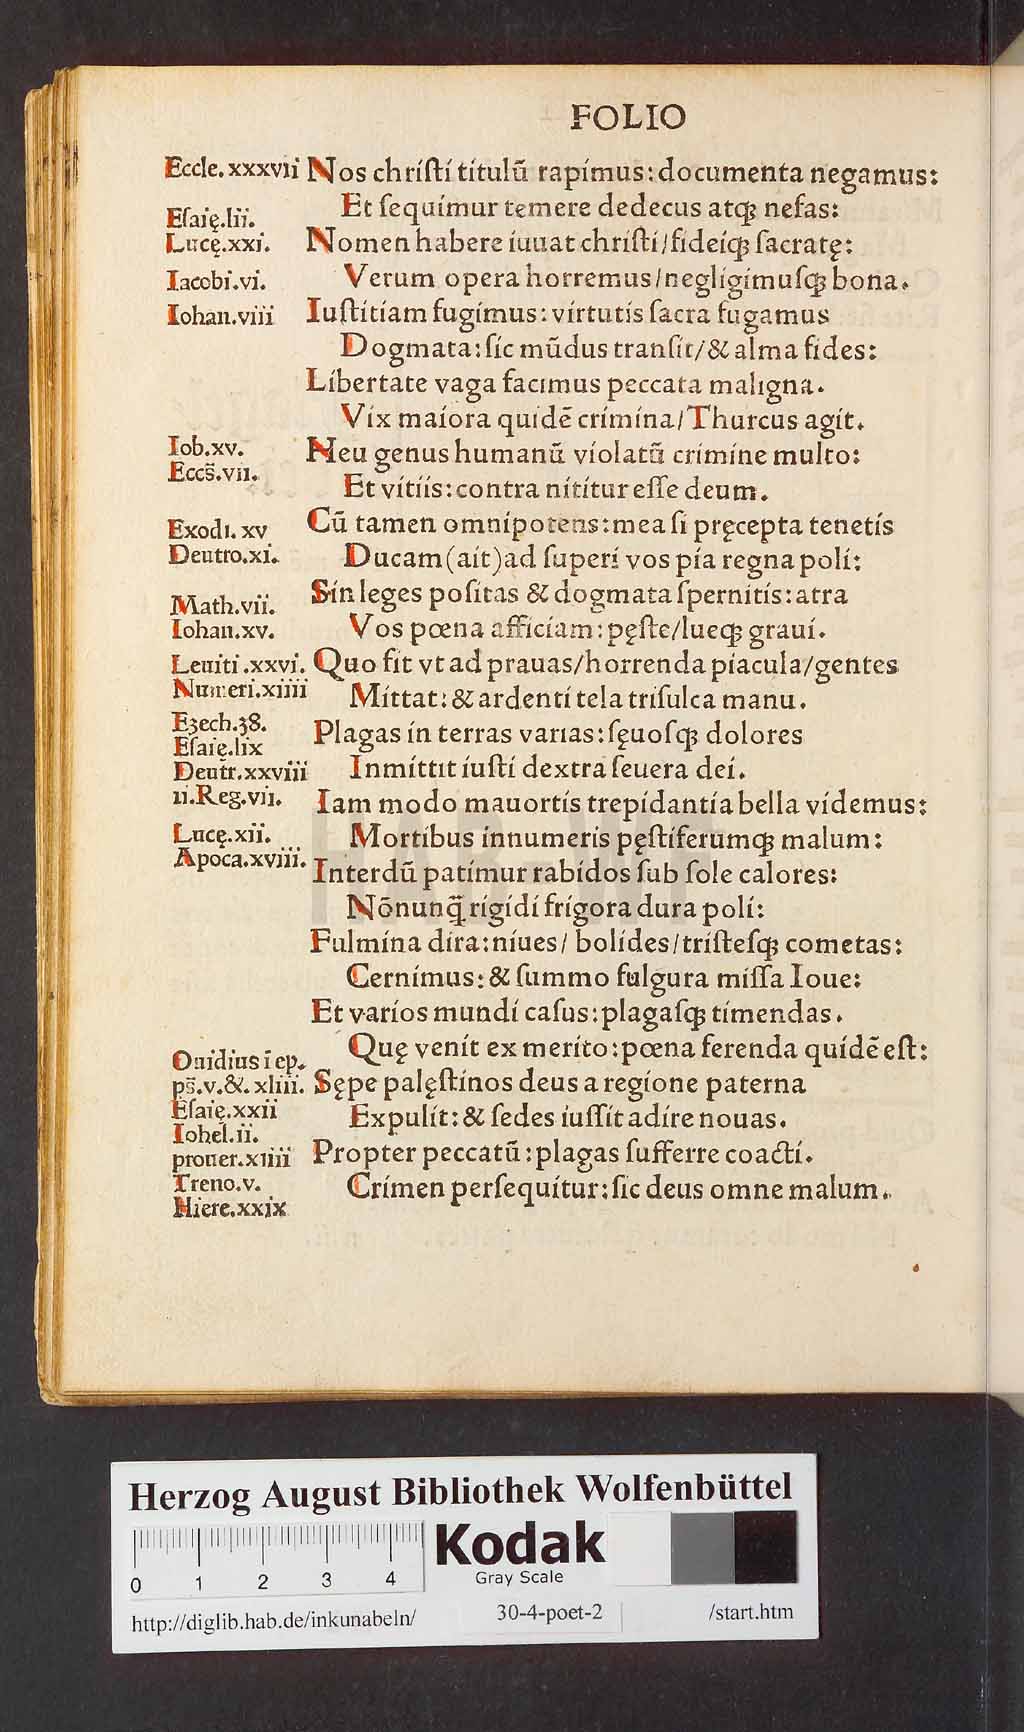 FOLIO
Eccle. xxxvii Nos chriſti titulū rapimus: documenta negamus:
Et ſequimur temere dedecus atqꝫ nefas:
Eſaię.lii.
Lucę.xxi. Nomen habere iuuat chriſti/fideiqꝫ ſacratę:
Iacobi.vi. Verum opera horremus/negligimuſqꝫ bona.
Iohan.viii Iuſtitiam fugimus: virtutis ſacra fugamus
Dogmata: ſic mūdus tranſit/& alma fides:
Libertate vaga facimus peccata maligna.
Vix maiora quidē crimina/Thurcus agit.
Iob.xv. Heu genus humanū violatū crimine multo:
Eccs̄.vii. Et vitiis: contra nititur eſſe deum.
Exodi. xv Cū tamen omnipotens: mea ſi pręcepta tenetis
Deutro.xi. Ducam(ait)ad ſuperi vos pia regna poli:
Math.vii. Sin leges poſitas & dogmata ſpernitis: atra
Iohan.xv. Vos pœna afficiam: pęſte/lueqꝫ graui.
Leuiti.xxvi. Quo fit vt ad prauas/horrenda piacula/gentes
Numeri.xiiii Mittat: & ardenti tela triſulca manu.
Ezech.38. Plagas in terras varias: ſęuoſqꝫ dolores
Eſaię.lix
Deutr.xxviii Inmittit iuſti dextra ſeuera dei.
ii.Reg.vii. Iam modo mauortis trepidantia bella videmus:
Lucę.xii. Mortibus innumeris pęſtiferumqꝫ malum:
Apoca.xviii. Interdū patimur rabidos ſub ſole calores:
Nōnunq̄ rigidi frigora dura poli:
Fulmina dira: niues/ bolides/triſteſqꝫ cometas:
Cernimus: & ſummo fulgura miſſa Ioue:
Et varios mundi caſus: plagaſqꝫ timendas.
Quę venit ex merito: pœna ferenda quidē eſt:
Ouidius ī ep.
ps̄.v.&. xliii. Sępe palęſtinos deus a regione paterna
Eſaię.xxii Expulit: & ſedes iuſſit adire nouas.
Iohel.ii.
prouer.xiiii Propter peccatū: plagas ſufferre coacti.
Treno.v. Crimen perſequitur: ſic deus omne malum.
Hiere.xxix
HAB-WF
Herzog August Bibliothek Wolfenbüttel
0 1 2 3 4 Kodak
Gray Scale
http://diglib.hab.de/inkunabeln/ 30-4-poet-2 /start.htm